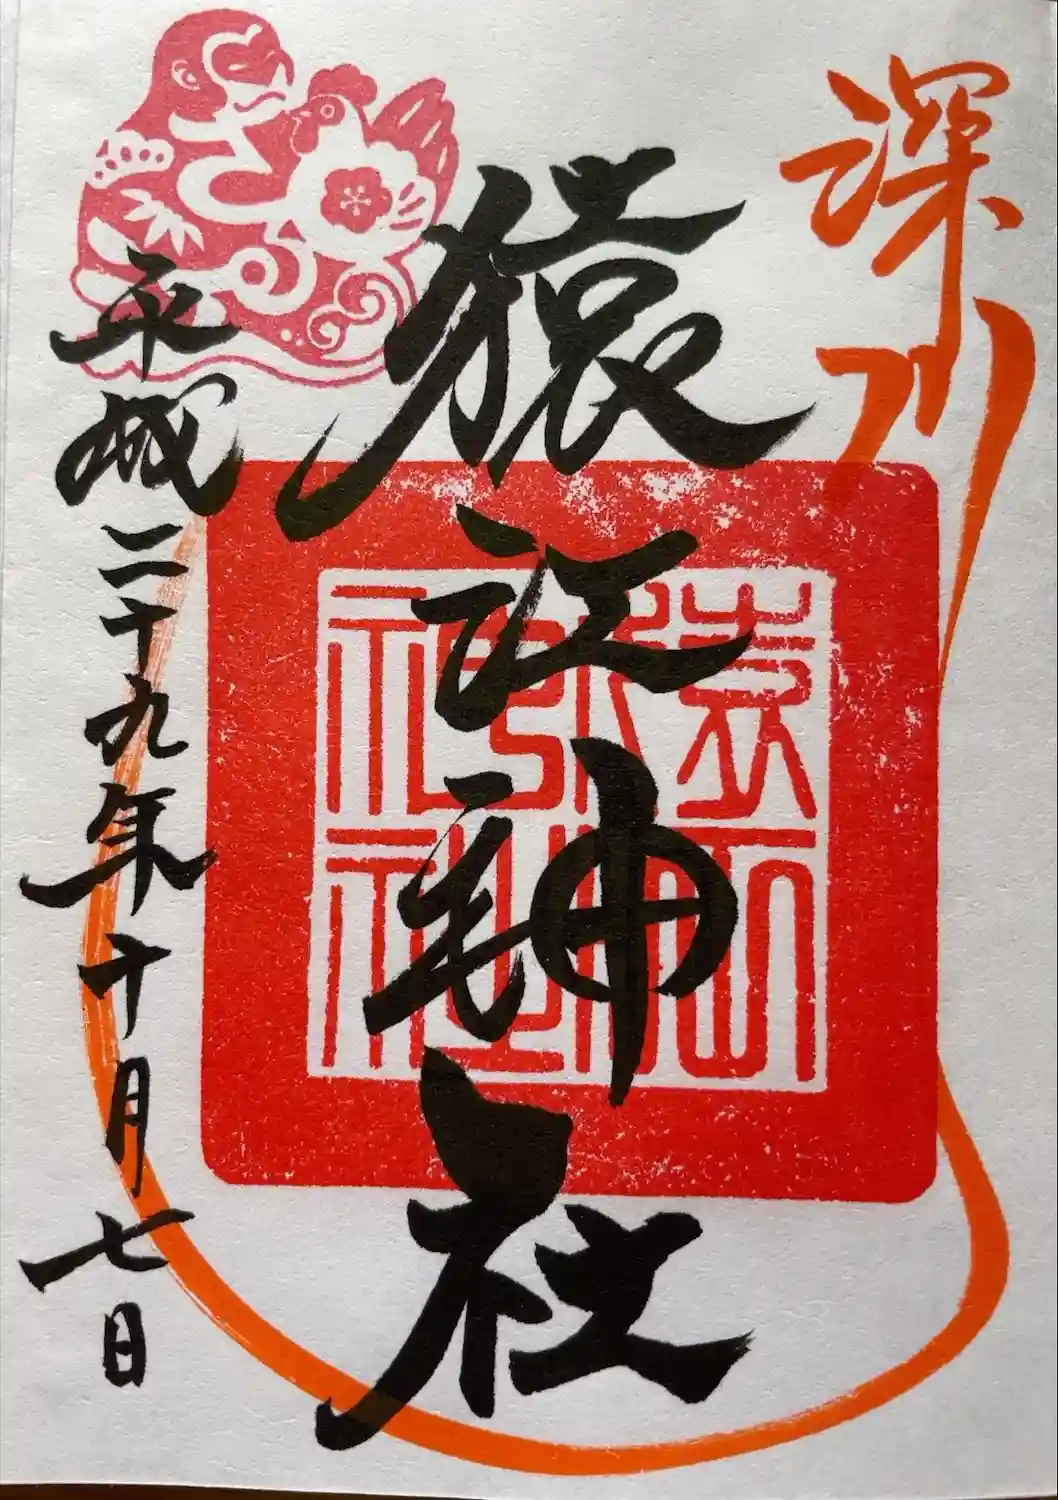 深川
猿江神社
平成二十九年十月七日